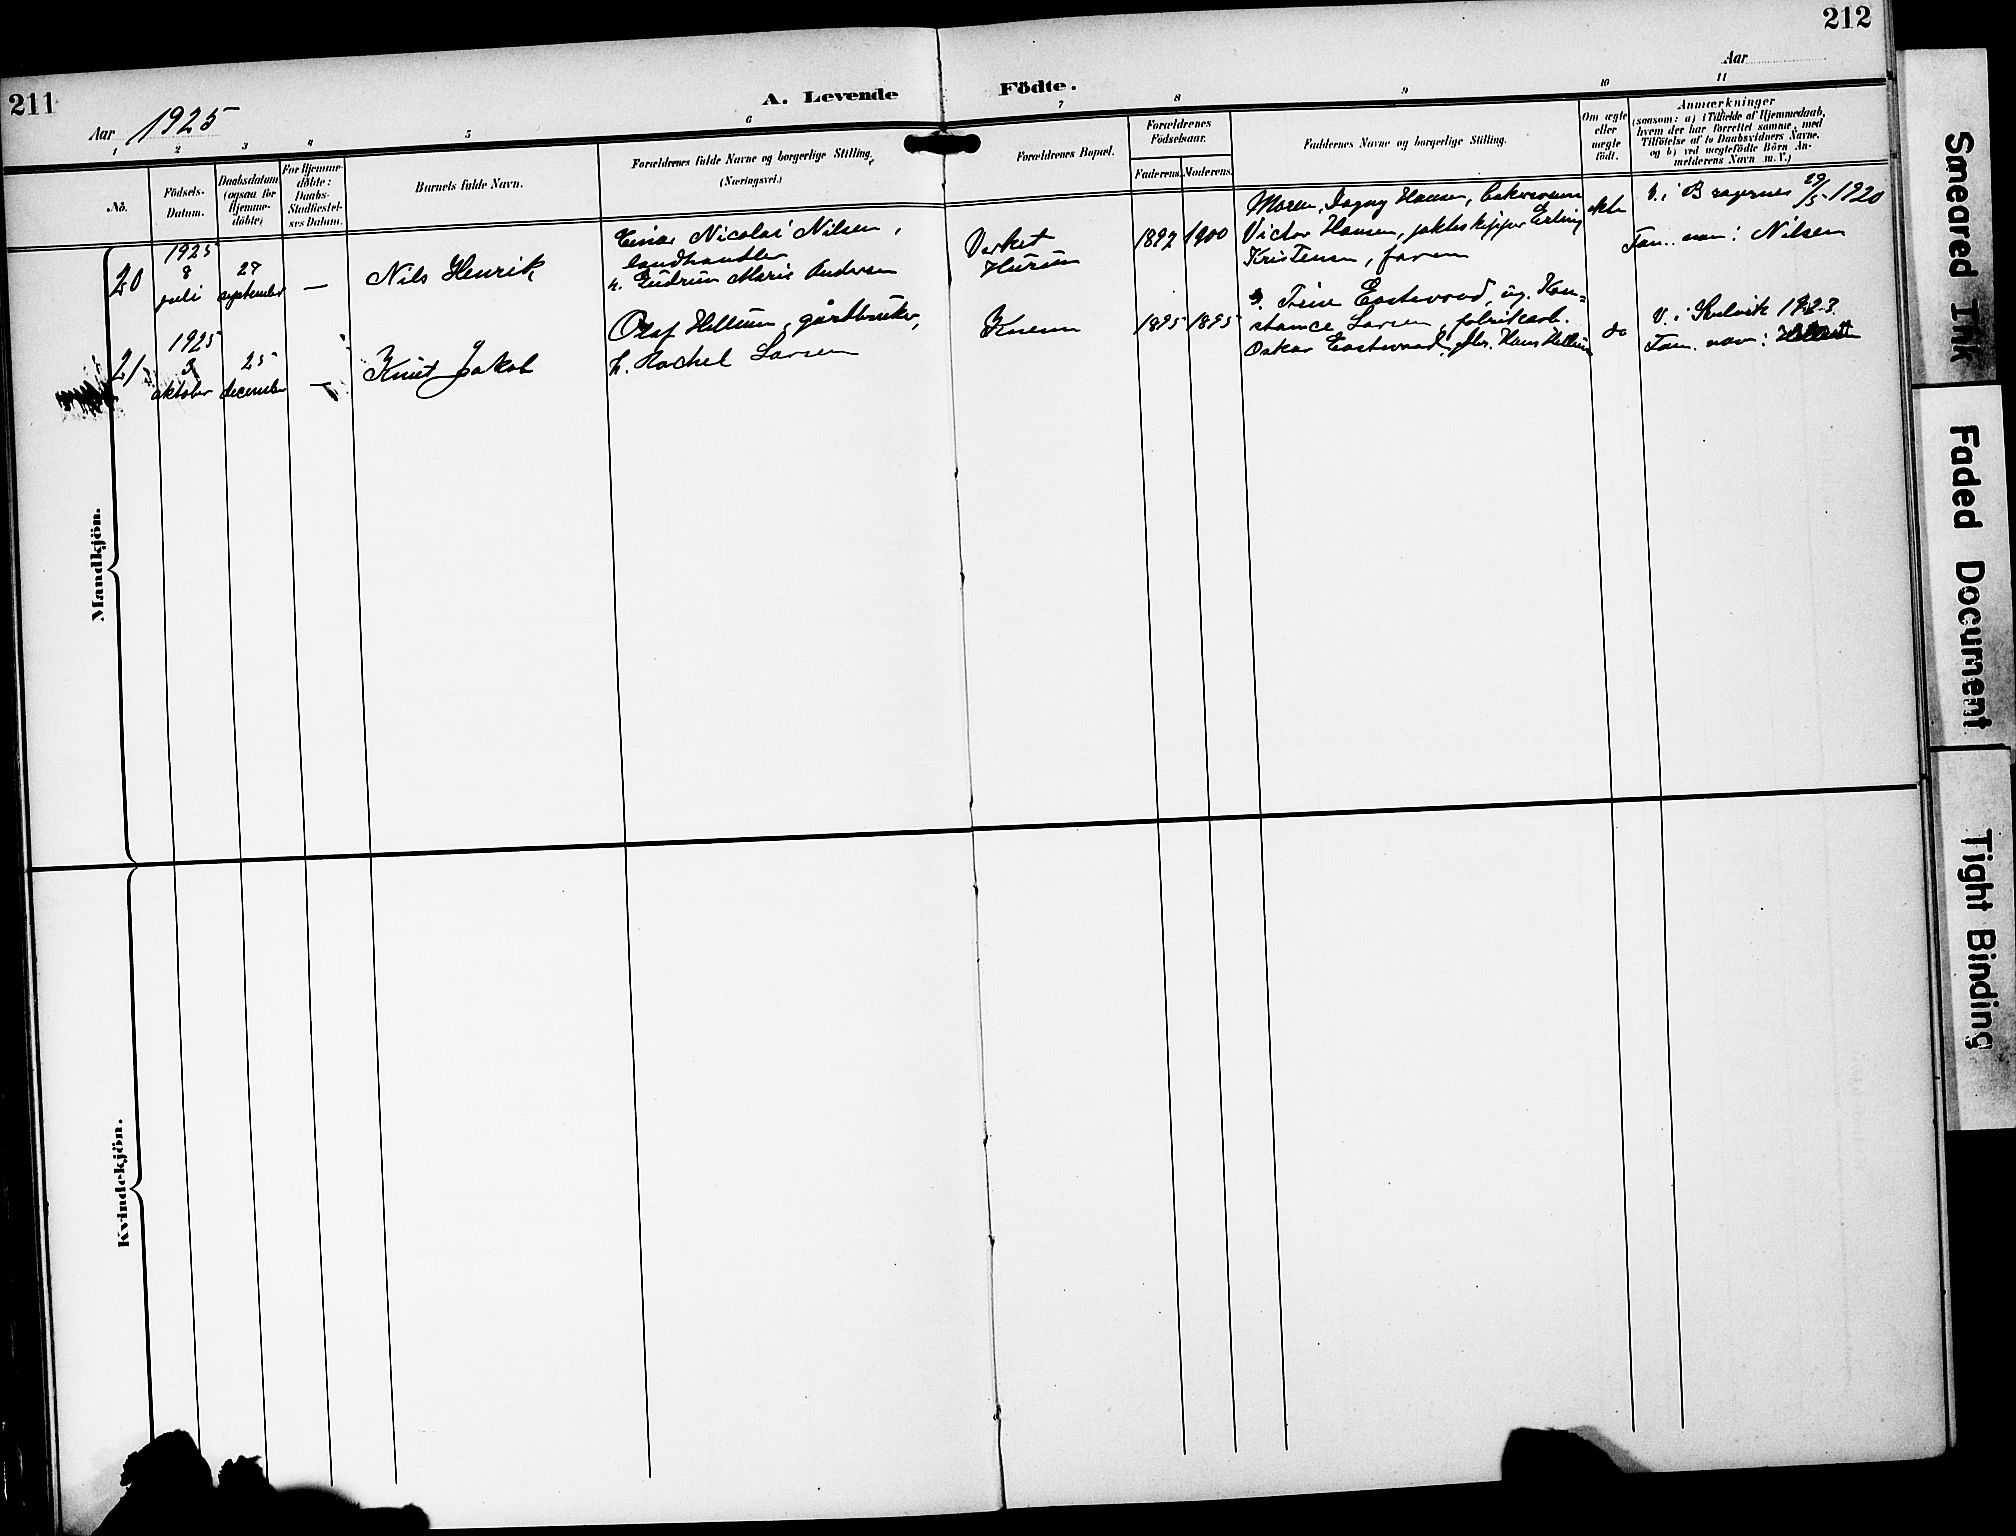 211
212
Aar 1925
A. Levende Födte.
Aar
1 2 3 4 5 6 7 8 9 10 11
No.
Födsels-
Datum.
Daabsdatum
(ogsaa for
Hjemme-
döbte)
For Hjemme-
döbte:
Daabs-
Stadfæstel-
ses Datum.
Barnets fulde Navn.
Forældrenes fulde Navne og borgerlige Stilling,
(Næringsvei.)
Forældrenes Bopæl.
Forældrenes
Födselsaar.
Faderens. Moderens.
Faddernes Navne og borgerlige Stilling.
Om ægte
eller
uægte
født.
Anmærkninger
(saasom: a) i Tilfælde af Hjemmedaab,
hvem der har forrettet samme, med
Tilføielse af to Daabsvidners Navne,
og b) ved uægtefödte Börn An-
melderens Navn m. V.)
Mandkjön.
20
1925
8
juli
27
september
—
Nils Henrik
Einar Nicolai Nilsen,
landhandler
h. Gudrun Marie Andersen
Verket
Hurum
1892 1900
Moren, Dagny Hansen,
Victor Hansen, jakteskipper Erling
Kristensen, faren
ekte
V. i Bragernes 29/5 1920
Fam. navn: Nilsen
21
1925
3
oktober
25
december
—
Knut Jakob
Olaf Hellum, gårdbruker,
h. Rachel Larsen
Knem
1895 1895
g. Trine Eastwood, ug. Kon=
stance Larsen, fabrikarb.
Oskar Eastwood, Hans Hellum
do
V. i Selvik 1923.
Fam. navn:
Kvindekjön.
Smeared Ink
Faded Document
Tight Binding